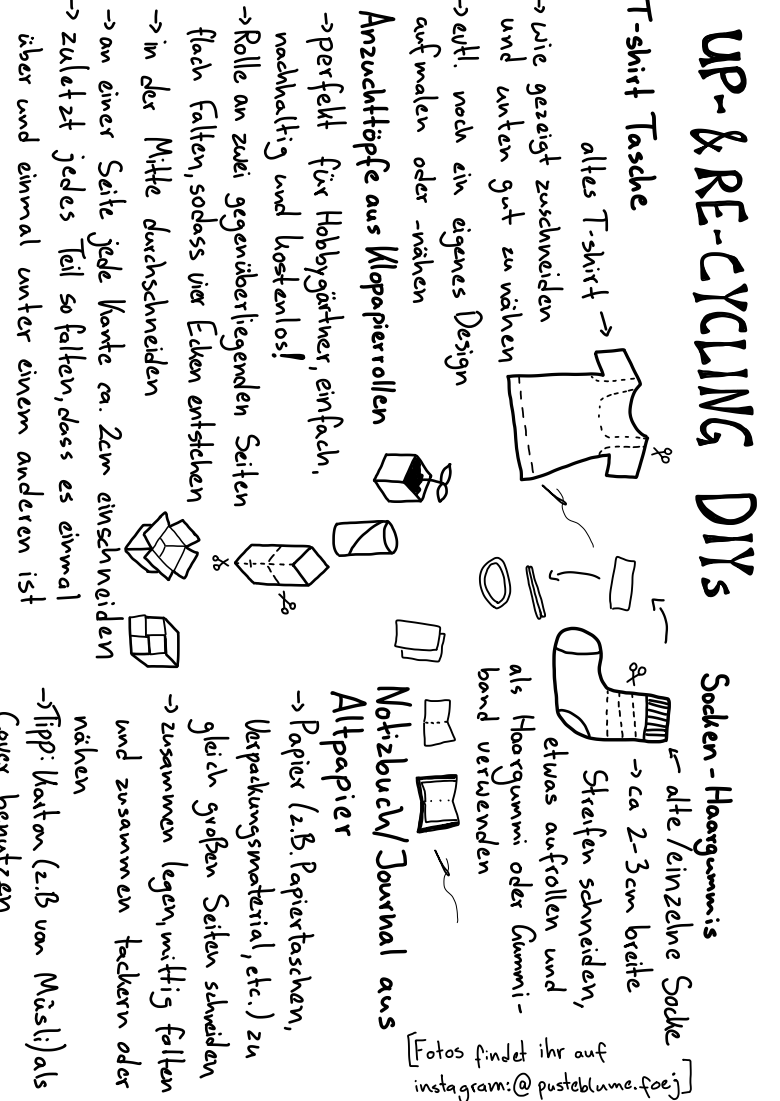 UP- & RE-CYCLING DIYs
T-shirt Tasche
altes T-shirt →
→ wie gezeigt zuschneiden
und unten gut zu nähen
→ evtl. noch ein eigenes Design
aufmalen oder -nähen
Anzuchttöpfe aus Klopapierrollen
→ perfekt für Hobbygärtner, einfach,
nachhaltig und kostenlos!
→ Rolle an zwei gegenüberliegenden Seiten
flach falten, sodass vier Ecken entstehen
→ in der Mitte durchschneiden
→ an einer Seite jede Kante ca. 2cm einschneiden
→ zuletzt jedes Teil so falten, dass es einmal
über und einmal unter einem anderen ist
Socken-Haargummis
← alte/einzelne Socke
→ ca 2-3cm breite
Streifen schneiden,
etwas aufrollen und
als Haargummi oder Gummi-
band verwenden
Notizbuch/Journal aus
Altpapier
→ Papier (z.B. Papiertaschen,
Verpackungsmaterial, etc.) zu
gleich großen Seiten schneiden
→ zusammen legen, mittig falten
und zusammen tackern oder
nähen
→ Tipp: Karton (z.B von Müsli) als
Cover benutzen
[Fotos findet ihr auf
instagram: @pusteblume.foej]